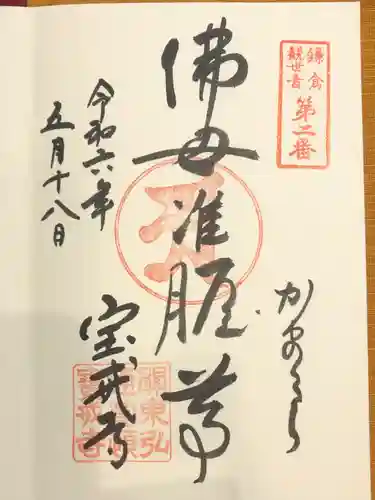 鎌倉
観世音
第二番
かまくら
佛母准胝尊
令和六年
五月十八日
宝戒寺